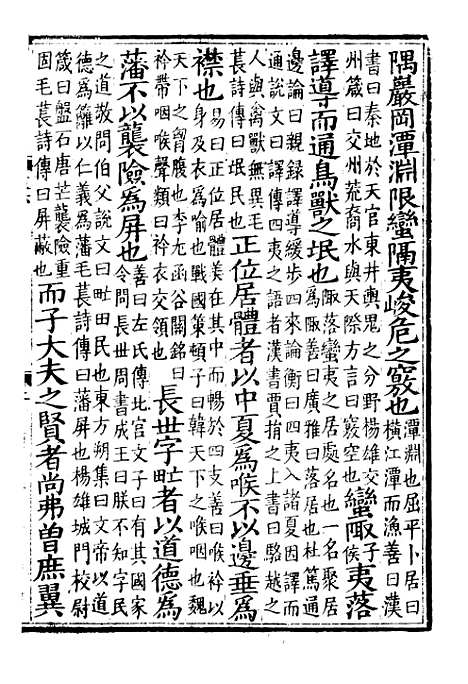 隅巖岡潭淵限蠻隔夷峻危之竅也潭淵也屈平卜居曰
橫江潭而漁善曰漢
書曰秦地於天官東井輿鬼之分野楊雄交
州箴曰交州荒裔水與天際方言曰竅空也蠻陬子侯夷落
譯導而通鳥獸之氓也陬落蠻夷之居處名也一名聚居
為陬善曰廣雅曰落居也杜篤通
邊論曰親錄譯導緩步四來論衡曰四夷入諸夏因譯而
通說文曰譯傳四夷之語者漢書賈捐之上書曰駱越之
人與禽獸無異毛
萇詩傳曰氓民也正位居體者以中夏為喉不以邊垂為
襟也易曰正位居體美在其中而暢於四支善曰衿以
身及衣為喻也戰國策頓子曰韓天下之喉咽也魏
天下之胷腹也李尤函谷關銘曰
衿帶咽喉聲類曰衿衣交領也長世字甿者以道德為
藩不以襲險為屏也善曰左氏傳北宮文子曰有其國家
令問長世周書成王曰朕不知字民
之道敬問伯父說文曰甿田民也東方朔集曰文帝以道
德為籬以仁義為藩毛萇詩傳曰藩屏也楊雄城門校尉
箴曰盤石唐芒襲險重
固毛萇詩傳曰屏蔽也而子大夫之賢者尚弗曾庶翼